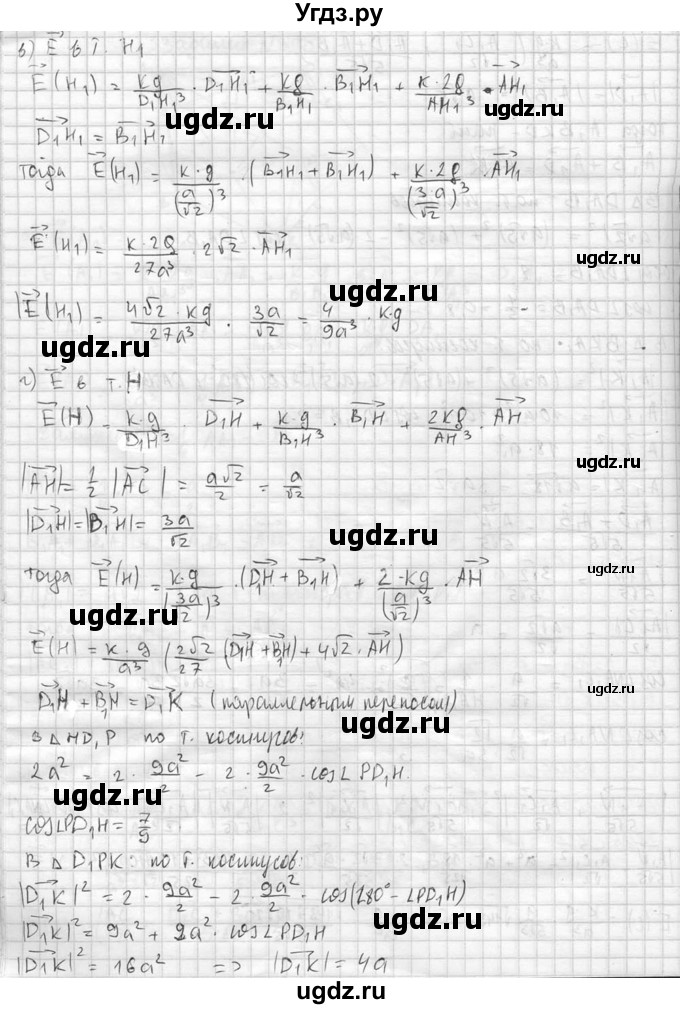 Угдз.ру
в) E⃗ в т. H₁
E⃗(H₁) = kg/D₁H₁³ · D₁H₁⃗ + kg/B₁H₁ · B₁H₁⃗ + k·2g/AH₁³ · AH₁⃗
ugdz.ru ugdz.ru
D₁H₁⃗ = B₁H₁⃗
ugdz.ru
тогда E⃗(H₁) = k·g/(a/√2)³ · (B₁H₁⃗ + B₁H₁⃗) + k·2g/(3·a/√2)³ · AH₁⃗
E⃗(H₁) = k·2g/27a³ · 2√2 · AH₁⃗
ugdz.ru
ugdz.ru
|E⃗(H₁) = 4√2·kg/27a³ · 3a/√2 = 4/9a³ · k·g
ugdz.ru
г) E⃗ в т. H
E⃗(H) = k·g/D₁H³ D₁H⃗ + k·g/B₁H³ · B₁H⃗ + 2kg/AH³ · AH⃗
ugdz.ru
|AH⃗| = 1/2 |AC⃗| = a√2/2 = a/√2
|D₁H⃗| = |B₁H⃗| = 3a/√2
ugdz.ru
ugdz.ru
тогда E⃗(H) = k·g/(3a/√2)³ · (D₁H⃗ + B₁H⃗) + 2·kg/(a/√2)³ · AH⃗
ugdz.ru
E⃗(H) = k·g/a³ (2√2/27 (D₁H⃗ + B₁H⃗) + 4√2 · AH⃗)
ugdz.ru
D₁H⃗ + B₁H⃗ = D₁K⃗ (параллельным переносом)
ugdz.ru
В △ HD₁P по т. косинусов:
2a² = 2 · 9a²/2 - 2 · 9a²/2 · cos∠PD₁H
ugdz.ru
ugdz.ru
cos∠PD₁H = 7/9
В △ D₁PK: по т. косинусов:
|D₁K⃗|² = 2 · 9a²/2 - 2 · 9a²/2 · cos(180° - ∠PD₁H)
ugdz.ru
|D₁K⃗|² = 9a² + 9a² · cos∠PD₁H
ugdz.ru
|D₁K⃗|² = 16a² => |D₁K⃗| = 4a
ugdz.ru